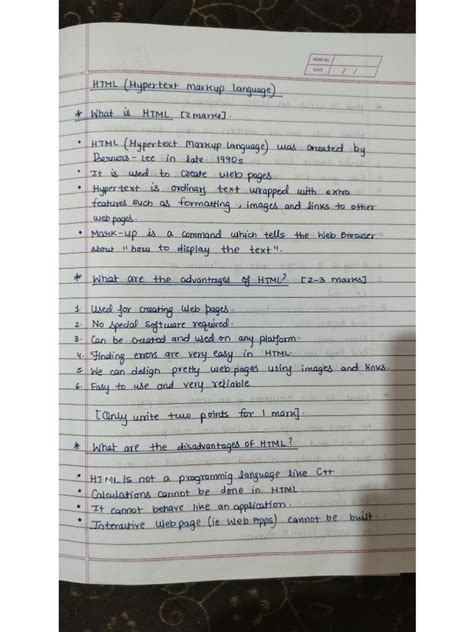 PAGE No.
DATE / /
HTML (Hypertext markup language)
* What is HTML [2 marks].
• HTML (Hypertext Markup language) was created by
Berners-lee in late 1990s
• It is used to create web pages
• Hypertext is ordinary text wrapped with extra
features such as formatting, images and links to other
web pages.
• Mark-up is a command which tells the Web Browser
about "how to display the text".
* What are the advantages of HTML? [2-3 marks]
1. Used for creating Web pages.
2. No special software required.
3. Can be created and used on any platform.
4. Finding errors are very easy in HTML
5. We can design pretty web pages using images and links.
6. Easy to use and very reliable
[Only write two points for 1 mark].
* What are the disadvantages of HTML?
• HTML is not a programmig language like C++
• Calculations cannot be done in HTML
• It cannot behave like an application.
• Interactive Web page (ie Web Apps) cannot be built.